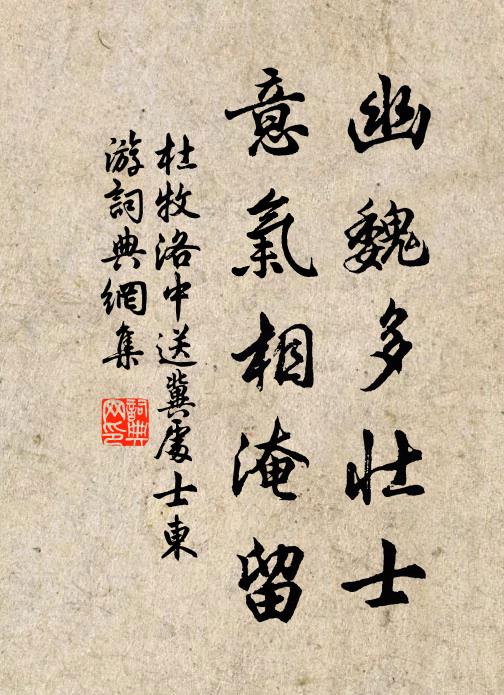 幽魏多壮士
意氣相淹留
杜牧洛中送冀處士東
游詞典網集
詞典
网印